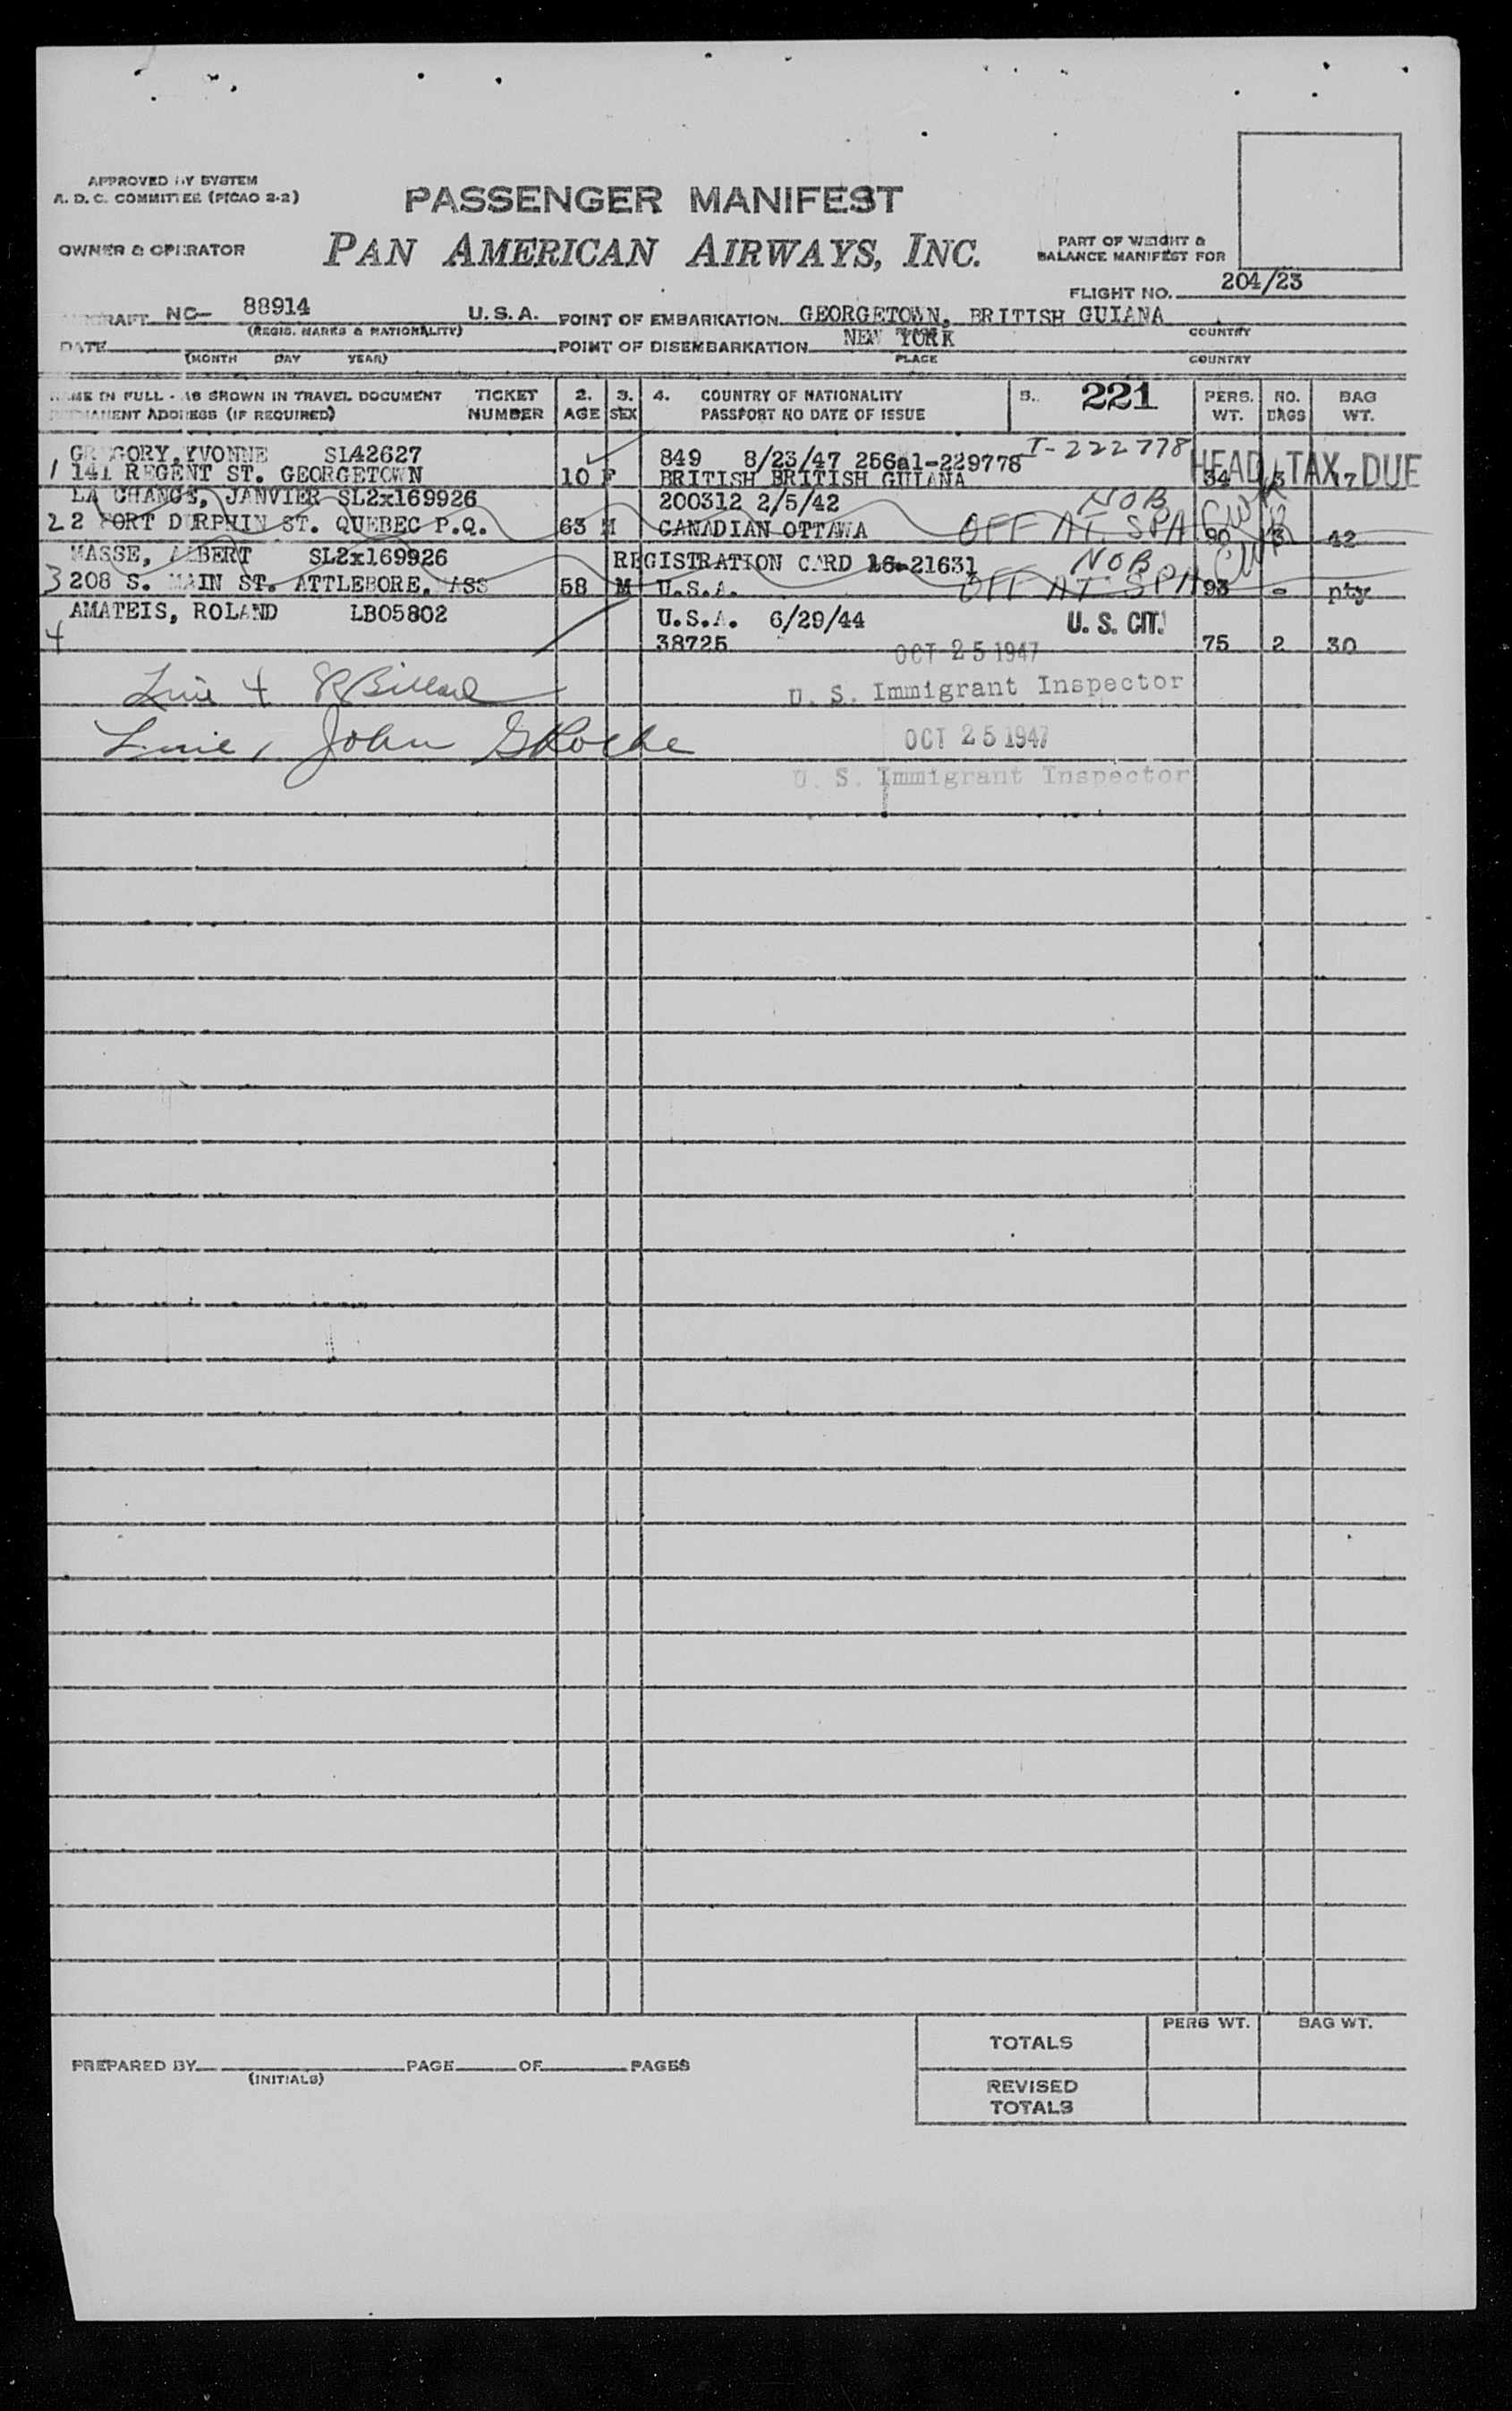 APPROVED BY SYSTEM
A. D. C. COMMITTEE (PICAO 2-2)
PASSENGER MANIFEST
OWNER & OPERATOR
PAN AMERICAN AIRWAYS, INC.
PART OF WEIGHT &
BALANCE MANIFEST FOR
FLIGHT NO. 204/23
AIRCRAFT NC- 88914 U.S.A. POINT OF EMBARKATION GEORGETOWN, BRITISH GUIANA
(REGIS. MARKS & NATIONALITY) COUNTRY
DATE POINT OF DISEMBARKATION NEW YORK
(MONTH DAY YEAR) PLACE COUNTRY
NAME IN FULL - AS SHOWN IN TRAVEL DOCUMENT TICKET 2. 3. 4. COUNTRY OF NATIONALITY 5. 221 PERS. NO. BAG
PERMANENT ADDRESS (IF REQUIRED) NUMBER AGE SEX PASSPORT NO DATE OF ISSUE WT. BAGS WT.
GREGORY, YVONNE SL42627 849 8/23/47 256a1-229778 I-222778
1 141 REGENT ST. GEORGETOWN 10 F BRITISH BRITISH GUIANA 34 3 17 HEAD TAX DUE
LA CHANCE, JANVIER SL2x169926 200312 2/5/42 NOB
2 2 PORT ST. QUEBEC P.Q. 63 M CANADIAN OTTAWA OFF AT SPA 90 3 42
MASSE, ALBERT SL2x169926 REGISTRATION CARD 16-21631 NOB
3 208 S. MAIN ST. ATTLEBORE, MASS 58 M U.S.A. OFF AT SPA 93 - pty
AMATEIS, ROLAND LB05802 U.S.A. 6/29/44 U. S. CIT.
4 38725 75 2 30
OCT 25 1947
Line 4 R Billard U. S. Immigrant Inspector
Line 1 John G Roche OCT 25 1947
U. S. Immigrant Inspector
PERS WT. BAG WT.
TOTALS
PREPARED BY PAGE OF PAGES
(INITIALS)
REVISED
TOTALS